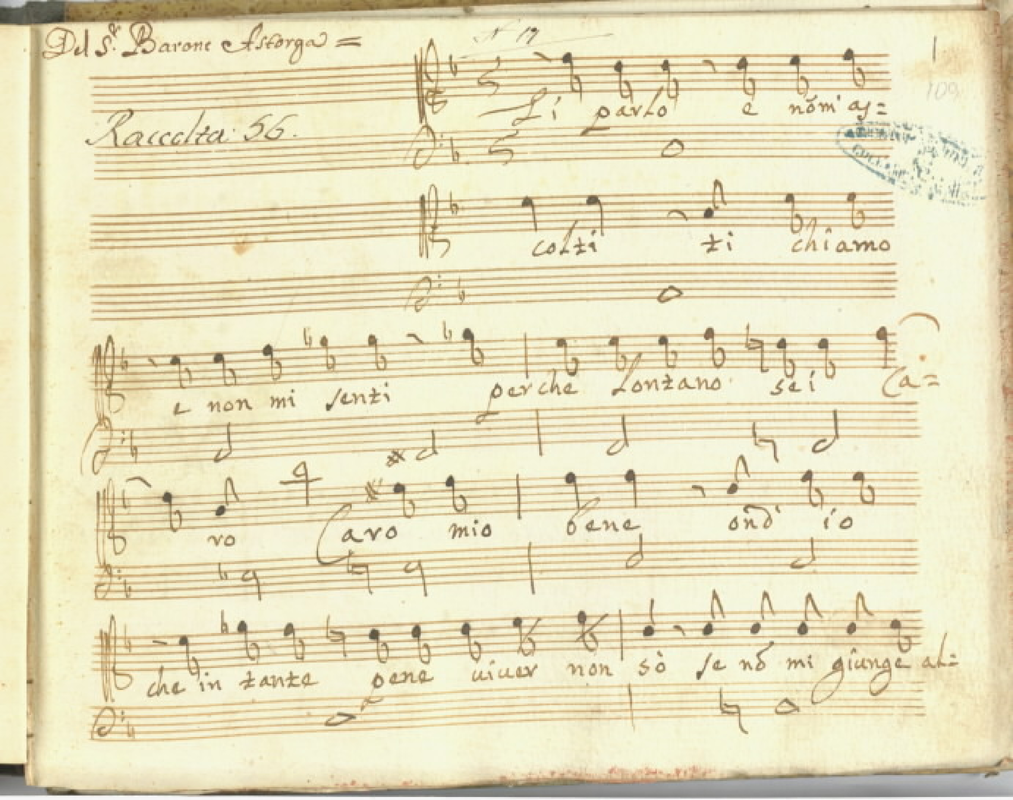 Del S.r Barone Astorga =
N 17
1
109
Ti parlo e nõ m'as=
Raccolta 56.
colti ti chiamo
e non mi senti perche lontano sei Ca=
ro Caro mio bene ond' io
che in tante pene uiuer non sò se nõ mi giunge al=